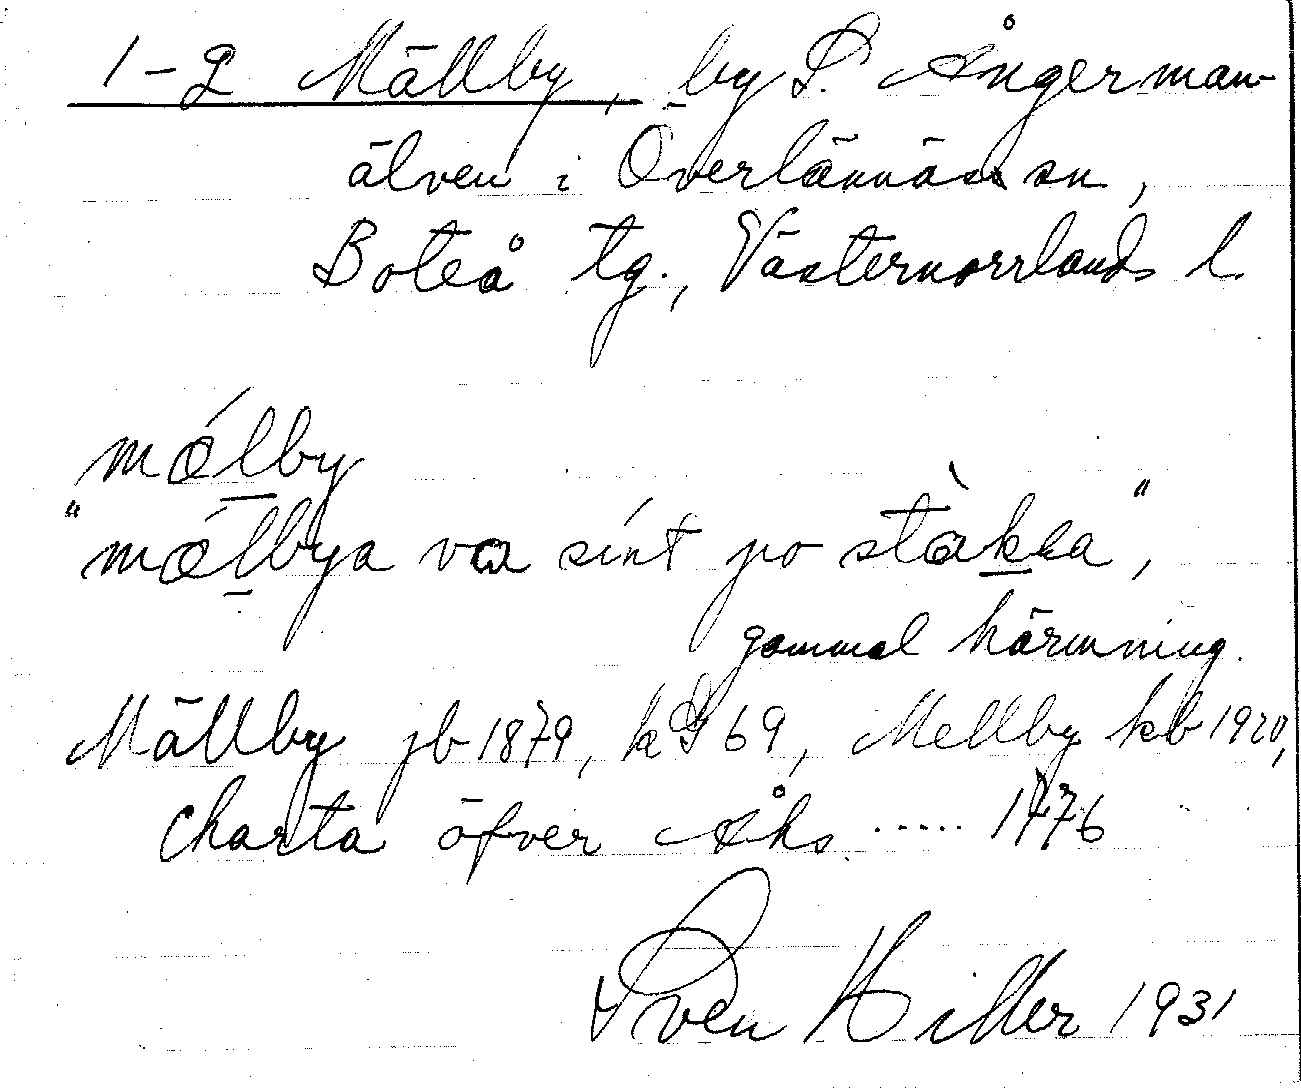 1-2 Mällby, by S. Ångerman-
älven i Överlännäs sn,
Boteå tg., Västernorrlands l.
mǽlby
"mǽlbya va sínt po stàkka",
gammal härmning.
Mällby jb 1879, k 69, Mellby kb 1920,
Charta öfver Åhs ..... 1776
Sven Hiller 1931